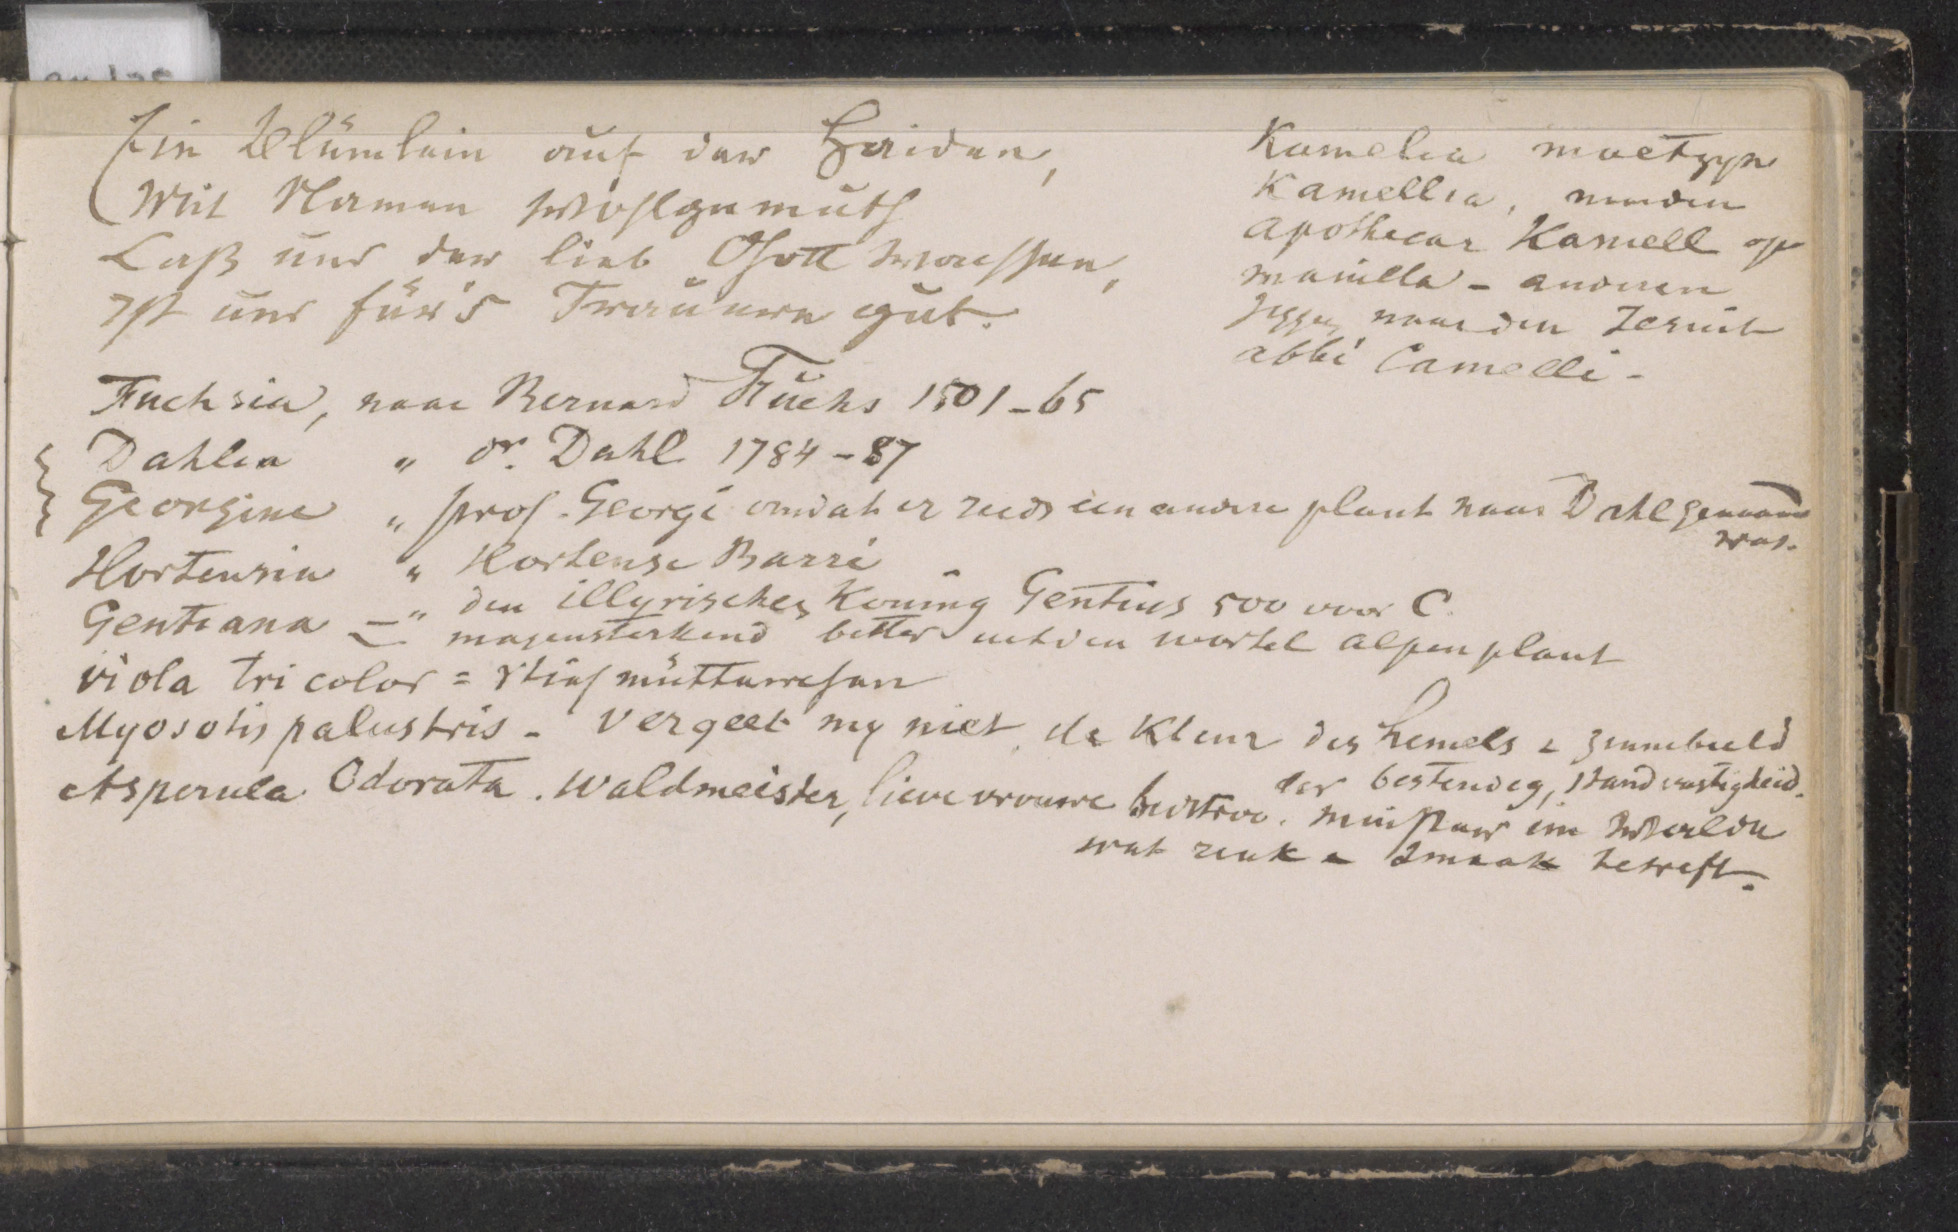 Ein Blümlein auf der Haiden,
Mit Namen Wohlgemuth
Laß uns der lieb Gott wachsen,
Ist uns für's Trauern gut.
Kamelia moet zyn
Kamellia, naar den
apothecar Kamell op
manilla - anderen
zeggen naar den Jesuit
abbé Camelli -
Fuchsia, naar Bernard Fuchs 1501-65
Dahlia " Dr. Dahl 1784-87
Georgine " prof. Georgi omdat er reeds een andere plant naar Dahl genaamd
was.
Hortensia " Hortense Barré
Gentiana - " den illyrischen Koning Gentius 500 voor C.
magensterkend bitter uit den wortel alpenplant
viola tricolor = Stiefmütterchen
Myosotis palustris - Vergeet my niet de Kleur des hemels & zinnebeeld
der bestendig, standvastigheid.
Asperula Odorata. Waldmeister, lieve vrouwe bedstroo. Meister im Walde
wat reuk & smaak betreft.